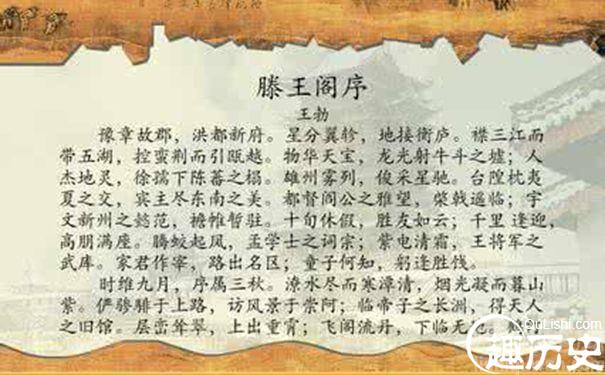 滕王阁序
王勃
豫章故郡，洪都新府。星分翼轸，地接衡庐。襟三江而
带五湖，控蛮荆而引瓯越。物华天宝，龙光射牛斗之墟；人
杰地灵，徐孺下陈蕃之榻。雄州雾列，俊采星驰。台隍枕夷
夏之交，宾主尽东南之美。都督阎公之雅望，棨戟遥临；宇
文新州之懿范，襜帷暂驻。十旬休假，胜友如云；千里逢迎，
高朋满座。腾蛟起凤，孟学士之词宗；紫电清霜，王将军之
武库。家君作宰，路出名区；童子何知，躬逢胜饯。
时维九月，序属三秋。潦水尽而寒潭清，烟光凝而暮山
紫。俨骖騑于上路，访风景于崇阿；临帝子之长洲，得天人
之旧馆。层峦耸翠，上出重霄；飞阁流丹，下临无地。
QuLishi.com
趣历史